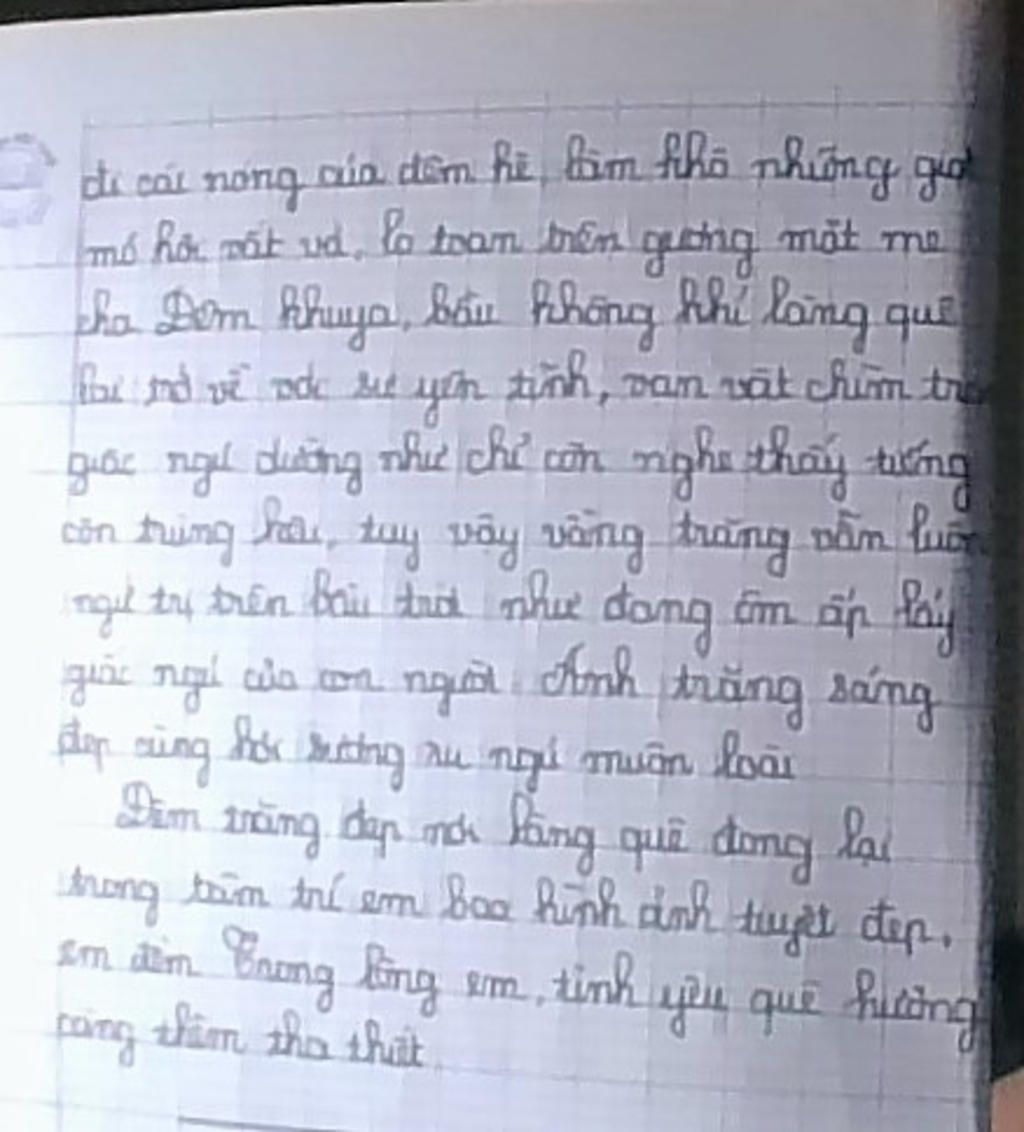 đi cái nóng của đêm hè, làm khô những giọt
mồ hôi vất vả, lo toan trên gương mặt mẹ
cha Đêm khuya, bầu không khí làng quê
lại trở về với sự yên tĩnh, vạn vật chìm tro
giấc ngủ dường như chỉ còn nghe thấy tiếng
côn trùng kêu, tuy vậy vầng trăng vẫn luôn
ngự trị trên bầu trời như đang ôm ấp lấy
giấc ngủ của con người. Ánh trăng sáng
đẹp cùng hơi sương ru ngủ muôn loài
Đêm trăng đẹp nơi làng quê đong lại
trong tâm trí em bao hình ảnh tuyệt đẹp,
êm đềm Trong lòng em, tình yêu quê hương
càng thêm tha thiết.